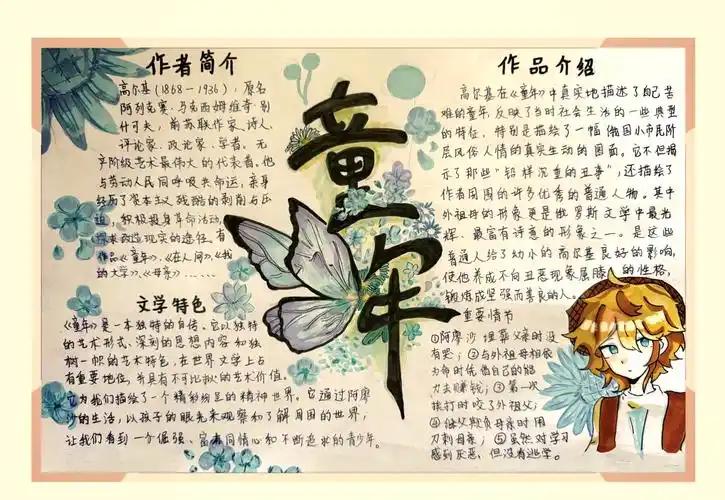 作者简介
高尔基(1868-1936),原名
阿列克赛·马克西姆维奇·别
什可夫,前苏联作家、诗人,
评论家、政论家、学者。无
产阶级艺术最伟大的代表者,他
与劳动人民同呼吸共命运,亲身
经历了资本主义残酷的剥削与压
迫,积极投身革命活动,
改造现实的途径。有
作品《童年》、《在人间》、《我
的大学》、《母亲》……
文学特色
《童年》是一本独特的自传。它以独特
的艺术形式、深刻的思想内容和独
树一帜的艺术特色,在世界文学上占
有重要地位,并具有不可比拟的艺术价值。
它为我们描绘了一个精彩纷呈的精神世界。它通过阿廖
沙的生活,以孩子的眼光来观察和了解周围的世界,
让我们看到一个倔强、富有同情心和不断追求的青少年。
童年
作品介绍
高尔基在《童年》中真实地描述了自己苦
难的童年,反映了当时社会生活的一些典型
的特征,特别是描绘了一幅俄国小市民阶
层风俗人情的真实生动的图画。它不但揭
示了那些"铅样沉重的丑事",还描绘了
作者周围的许多优秀的普通人物。其中
外祖母的形象更是俄罗斯文学中最光
辉、最富有诗意的形象之一。是这些
普通人给了幼小的高尔基良好的影响,
使他养成不向丑恶现象屈膝的性格,
锻炼成坚强而善良的人。
重要情节
①阿廖沙埋葬父亲时没
有哭;②与外祖母相依
为命时凭借自己的能
力去赚钱;③第一次
挨打时咬了外祖父;
④继父欺负母亲时用
刀刺母亲;⑤虽然对学习
感到厌恶,但没有逃学。